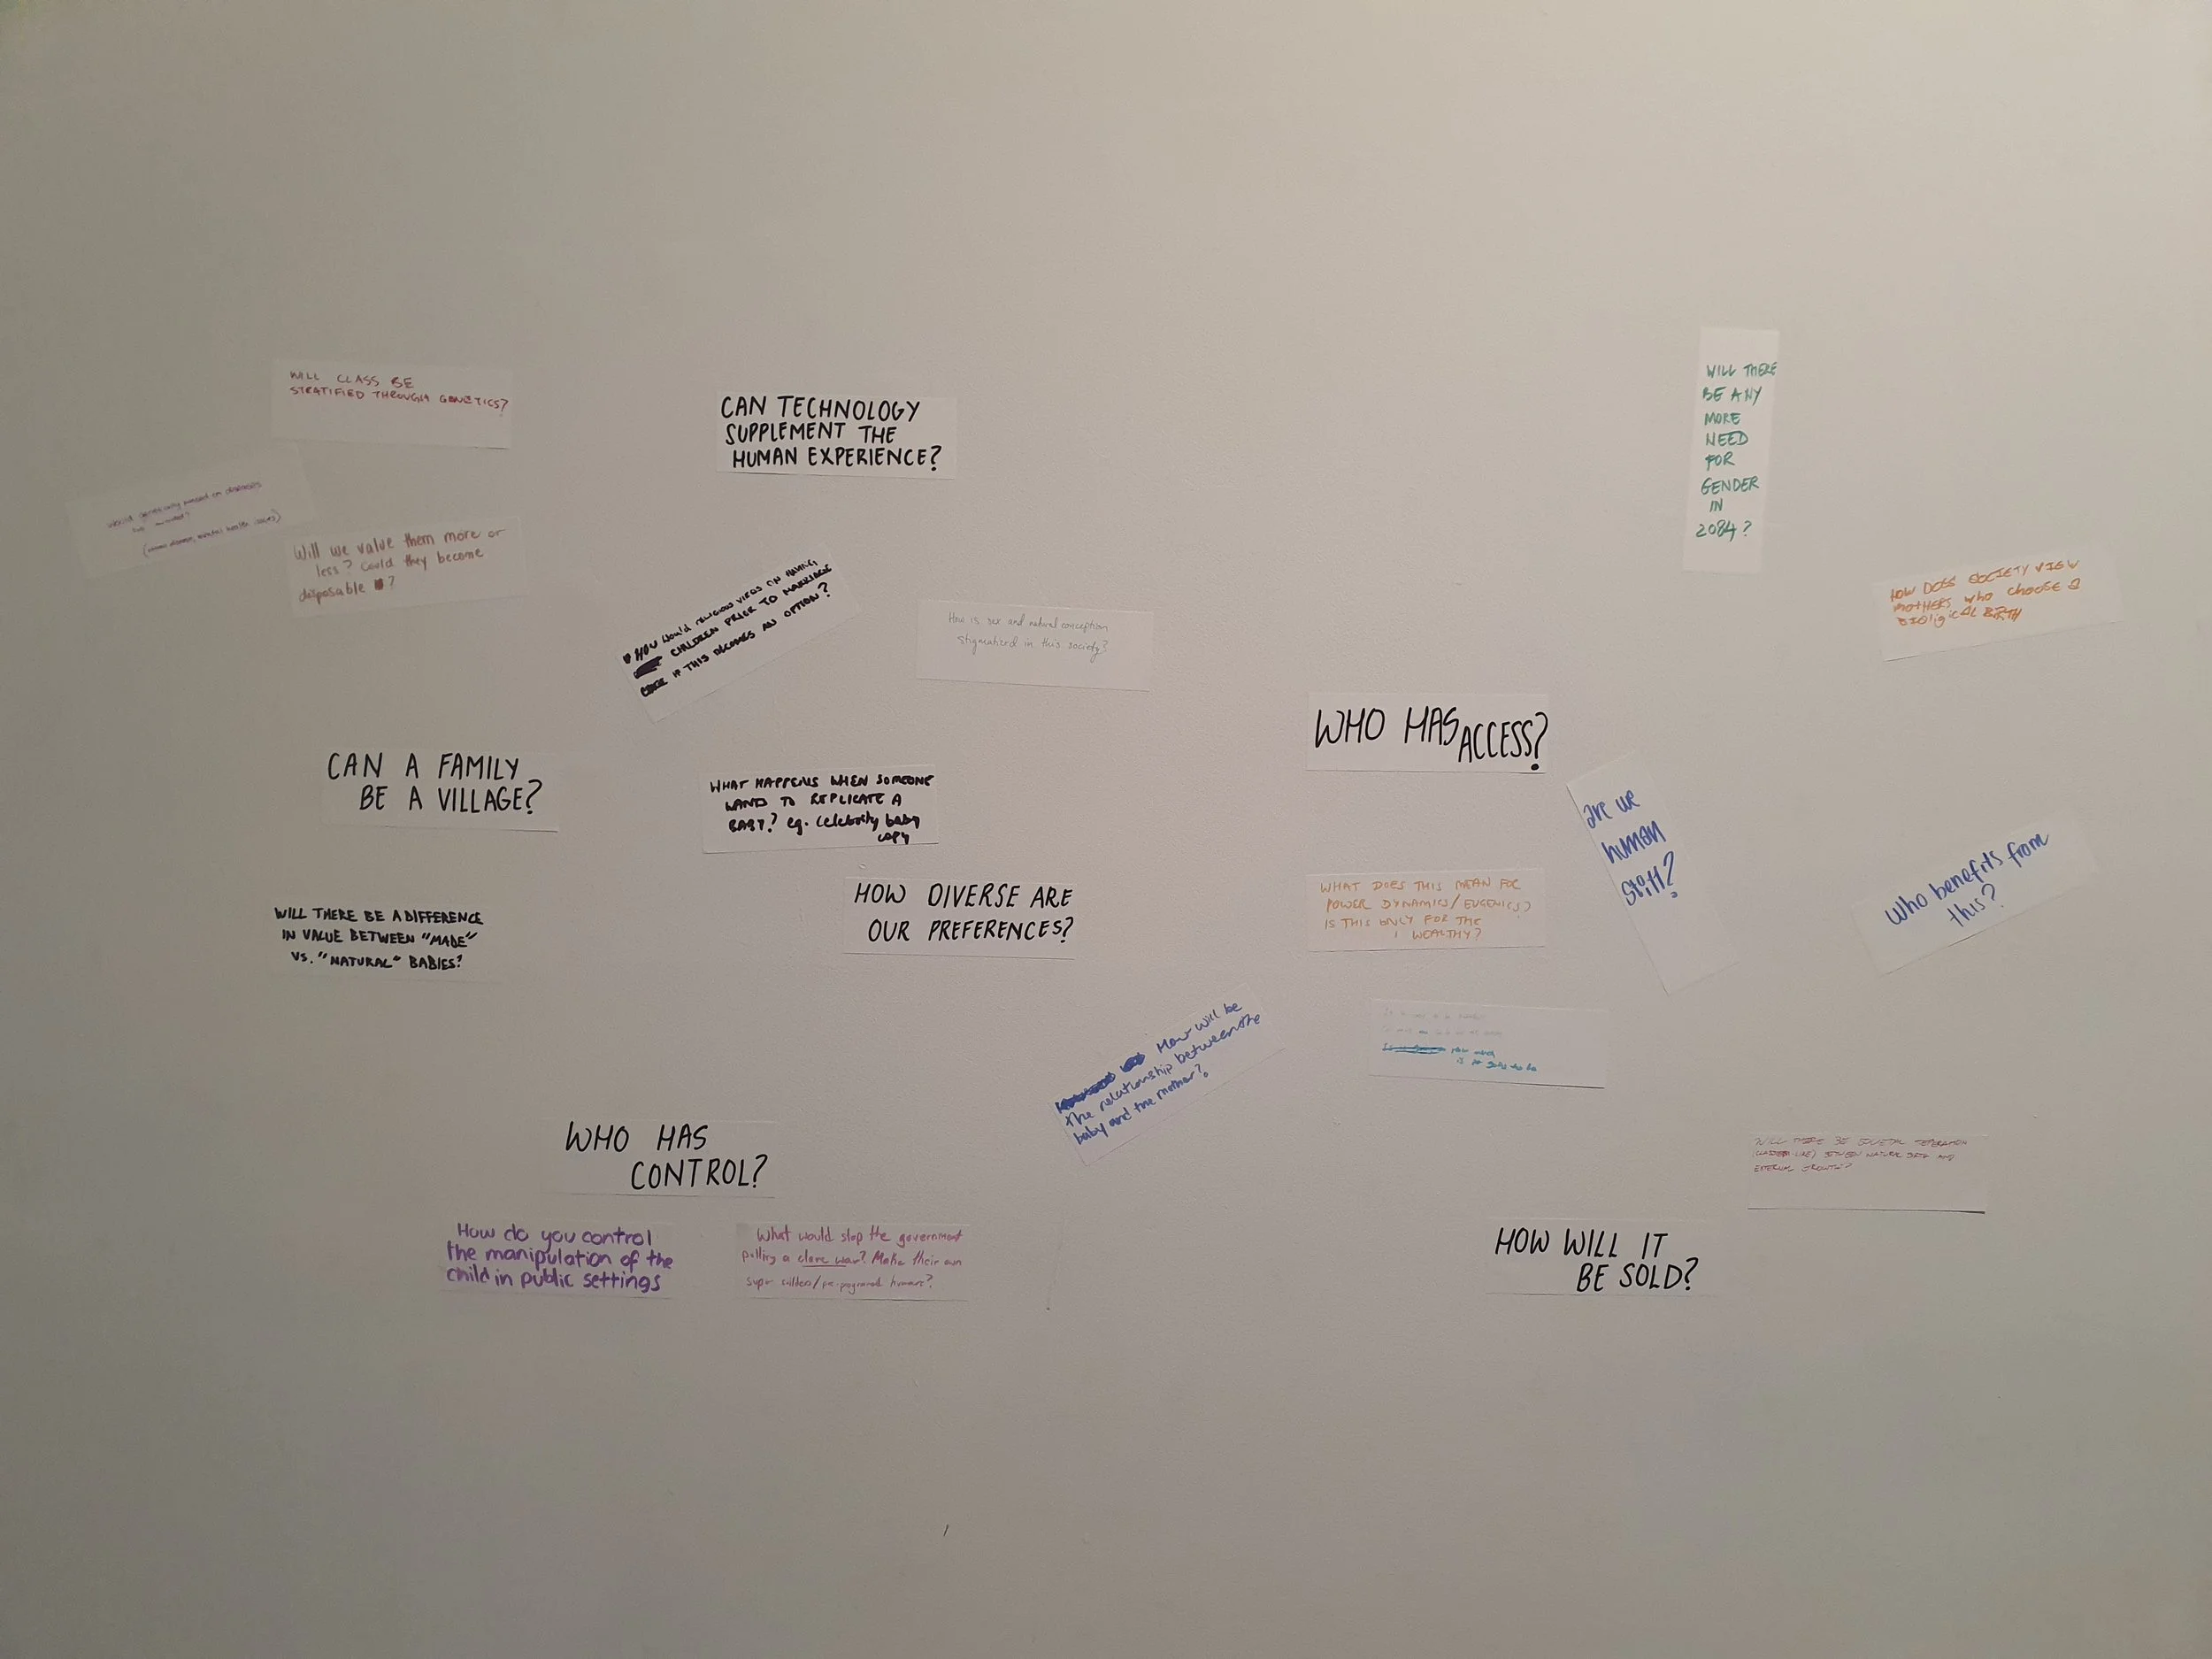 WILL CLASS BE
STRATIFIED THROUGH GENETICS?
CAN TECHNOLOGY
SUPPLEMENT THE
HUMAN EXPERIENCE?
WILL THERE
BE ANY
MORE
NEED
FOR
GENDER
IN
2084?
would genetically passed on diseases
(
mental health issues)
Will we value them more or
less? Could they become
disposable ?
HOW Would religious views on having
CHILDREN PRIOR TO MARRIAGE
IF THIS BECOMES AN OPTION?
How is sex and natural conception
stigmatized in this society?
HOW DOES SOCIETY VIEW
MOTHERS who choose a
BIOligicAL BIRTH
WHO HAS ACCESS?
CAN A FAMILY
BE A VILLAGE?
WHAT HAPPENS WHEN SOMEONE
WANTS TO REPLICATE A
BABY? eg. celebrity baby
copy
are we
human
still?
Who benefits from
this?
WILL THERE BE A DIFFERENCE
IN VALUE BETWEEN "MADE"
VS. "NATURAL" BABIES?
HOW DIVERSE ARE
OUR PREFERENCES?
WHAT DOES THIS MEAN FOR
POWER DYNAMICS/EUGENICS?
IS THIS ONLY FOR THE
WEALTHY?
How will be
the relationship between the
baby and the mother?
WHO HAS
CONTROL?
WILL THERE BE SOCIETAL SEPERATION
BETWEEN NATURAL BIRTH AND
EXTERNAL GROWTH?
How do you control
the manipulation of the
child in public settings
What would stop the government
pulling a clone war? Make their own
super soldiers/pre-programed humans?
HOW WILL IT
BE SOLD?